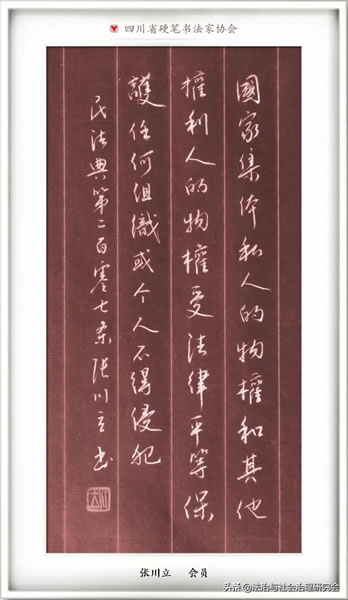 四川省硬笔书法家协会
國家集体私人的物權和其他
權利人的物權受法律平等保
護任何组織或个人不得侵犯
民法典第二百零七条張川立书
张川立 会员
头条@法治与社会治理研究会